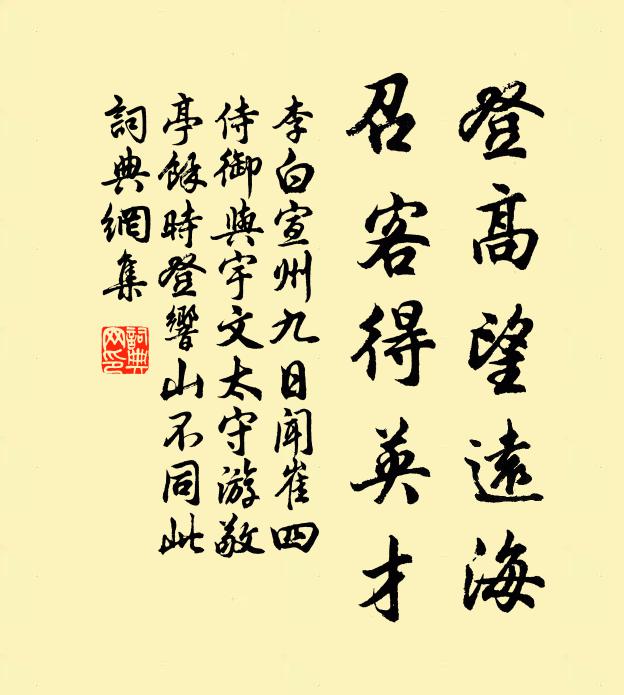 登高望遠海
召客得英才
李白宣州九日聞崔四
侍御與宇文太守游敬
亭餘時登響山不同此
詞典網集
詞典網印